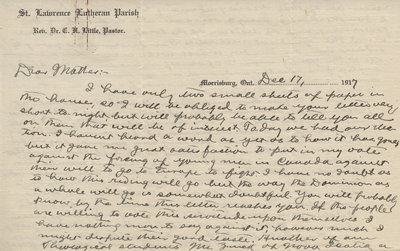 St. Lawrence Lutheran Parish
Rev. Dr. C. H. Little, Pastor.
Morrisburg, Ont. Dec 17, 1917
Dear Mother:-
I have only two small sheets of paper in
the house, so I will be obliged to make your letter very
short to-night but will probably be able to tell you all
on them that will be of interest. Today we had our elec-
tion. I haven't heard a word as yet as to how it has gone
but it gave me great satisfaction to put in my vote
against the forcing of young men in Canada against
their will to go to Europe to fight. I have no doubt as
to how this riding will go but the way the Dominion as
a whole will go is somewhat doubtful. You will probably
know by the time this letter reaches you. If the people
are willing to vote this servitude upon themselves I
have nothing more to say against it, however much I
might dispute their good taste. Another of our
Theological students Mr. of Nova Scotia a